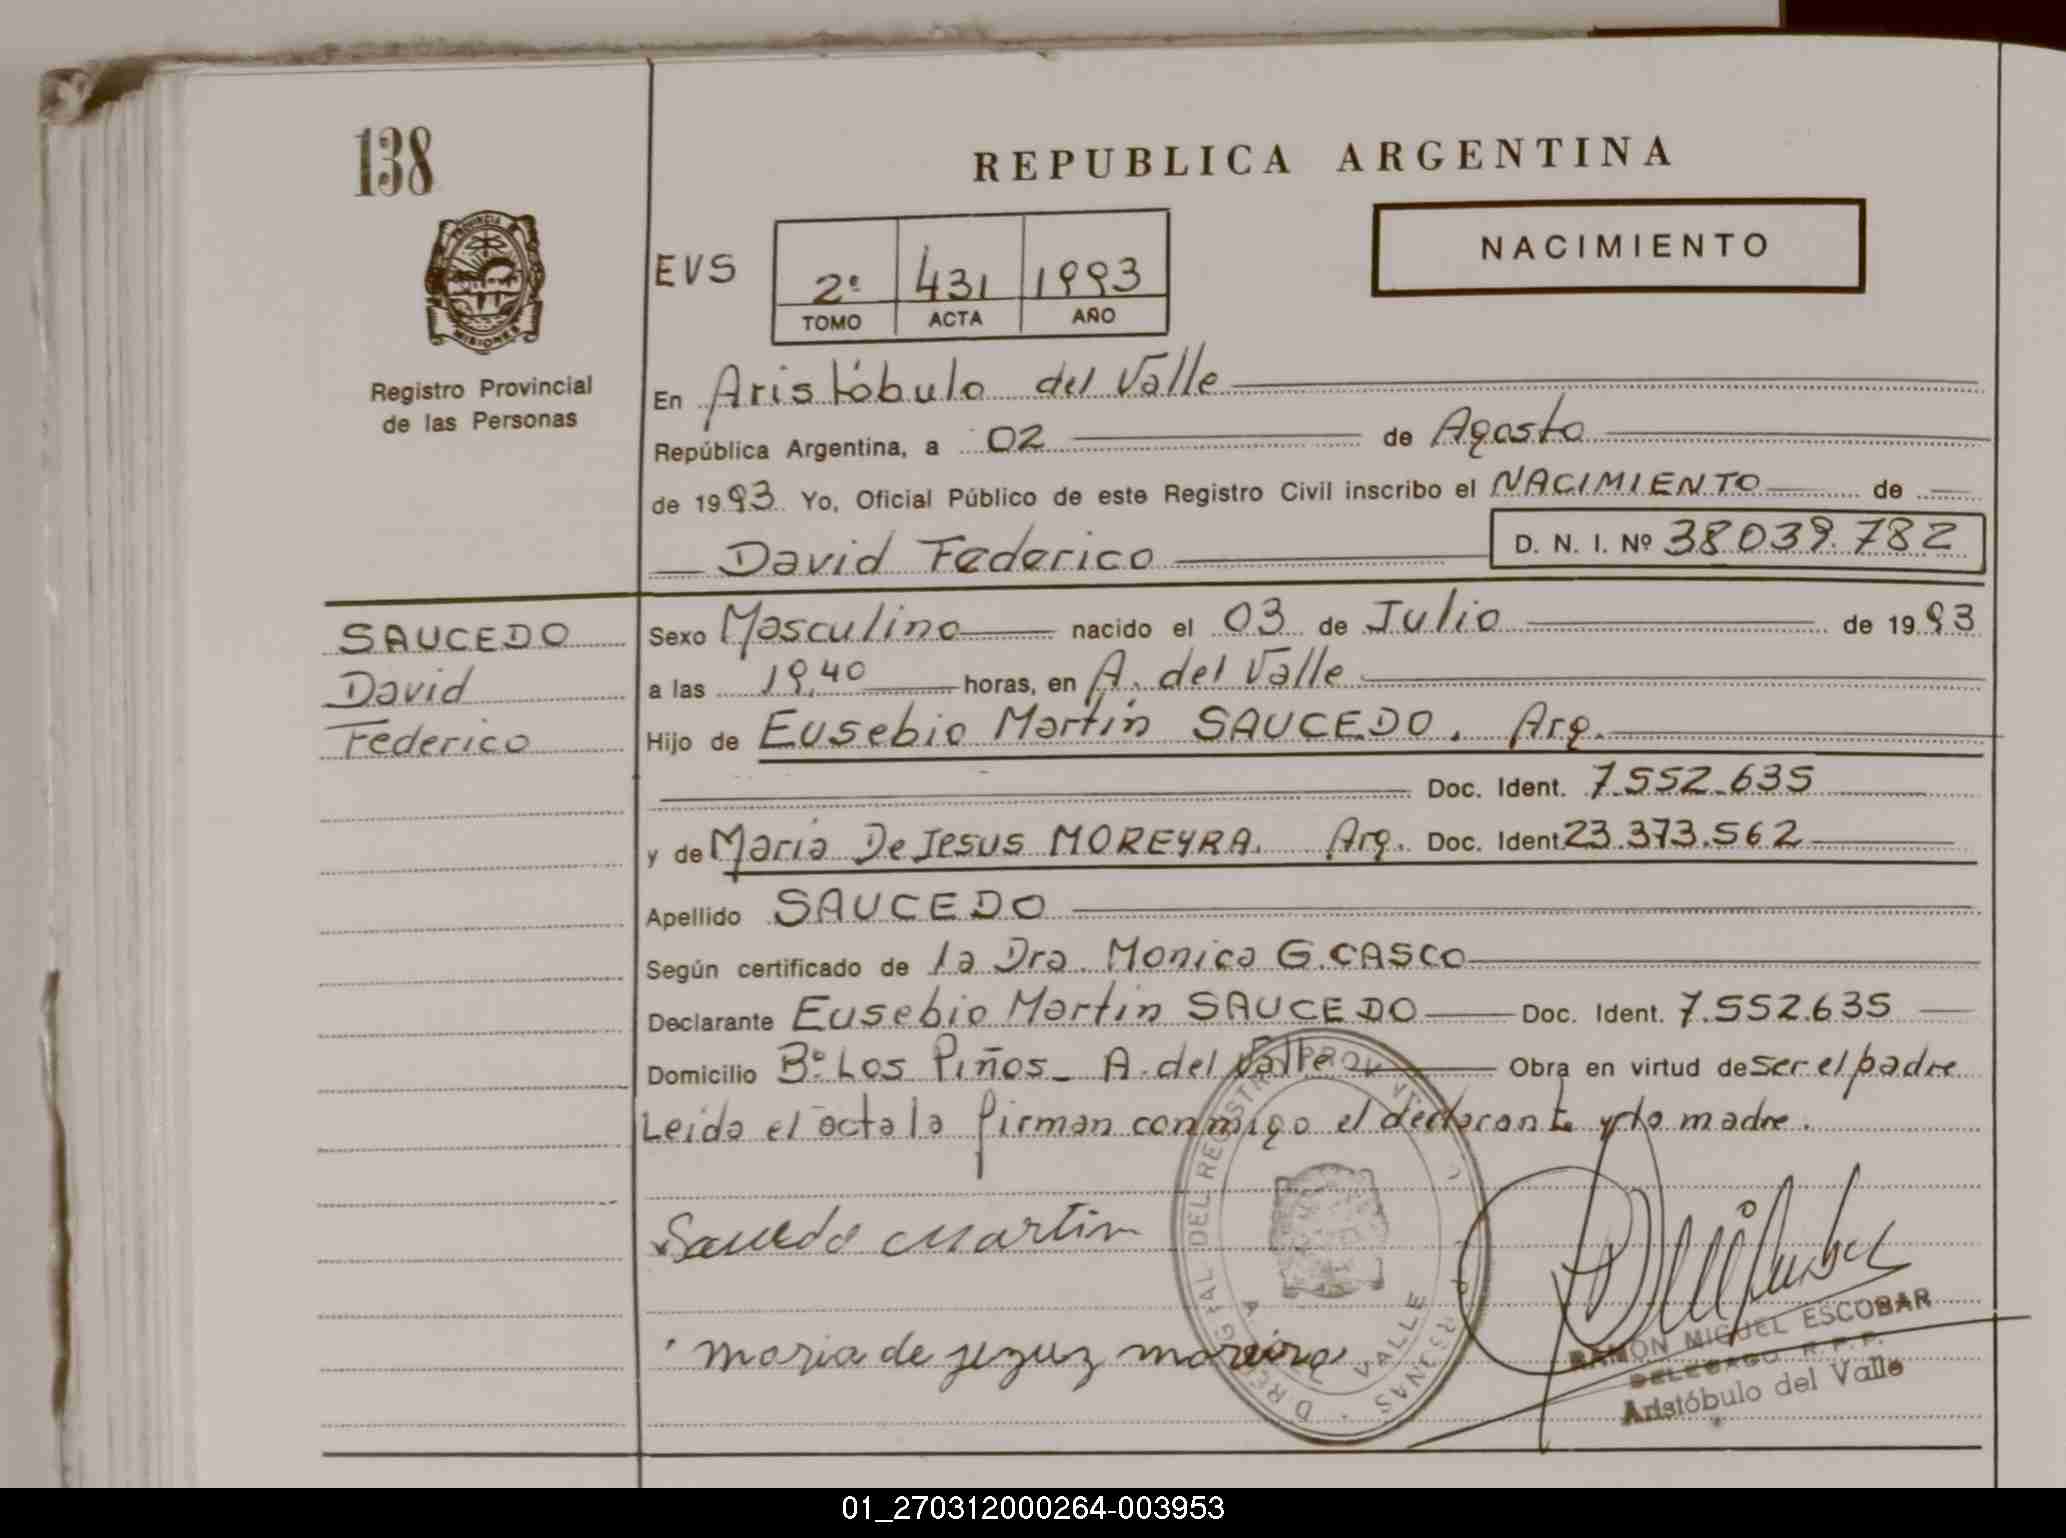 138
REPUBLICA ARGENTINA
PROVINCIA
MISIONES
Registro Provincial
de las Personas
EVS
2º 431 1993
TOMO ACTA AÑO
NACIMIENTO
En Aristóbulo del Valle
República Argentina, a 02 de Agosto
de 1993 Yo, Oficial Público de este Registro Civil inscribo el NACIMIENTO de
David Federico D. N. I. Nº 38039.782
SAUCEDO
David
Federico
Sexo Masculino nacido el 03 de Julio de 1993
a las 19.40 horas, en A. del Valle
Hijo de Eusebio Martin SAUCEDO. Arg.
Doc. Ident. 7.552.635
y de Maria De Jesus MOREYRA. Arg. Doc. Ident. 23.373.562
Apellido SAUCEDO
Según certificado de la Dra. Monica G. CASCO
Declarante Eusebio Martin SAUCEDO Doc. Ident. 7.552.635
Domicilio Bº Los Piños - A. del Valle Obra en virtud de ser el padre
Leida el acta la firman conmigo el declarante y la madre.
Saucedo Martin
maria de jezuz moreira
RAMON MIGUEL ESCOBAR
DELEGADO R.P.P.
Aristóbulo del Valle
01_270312000264-003953